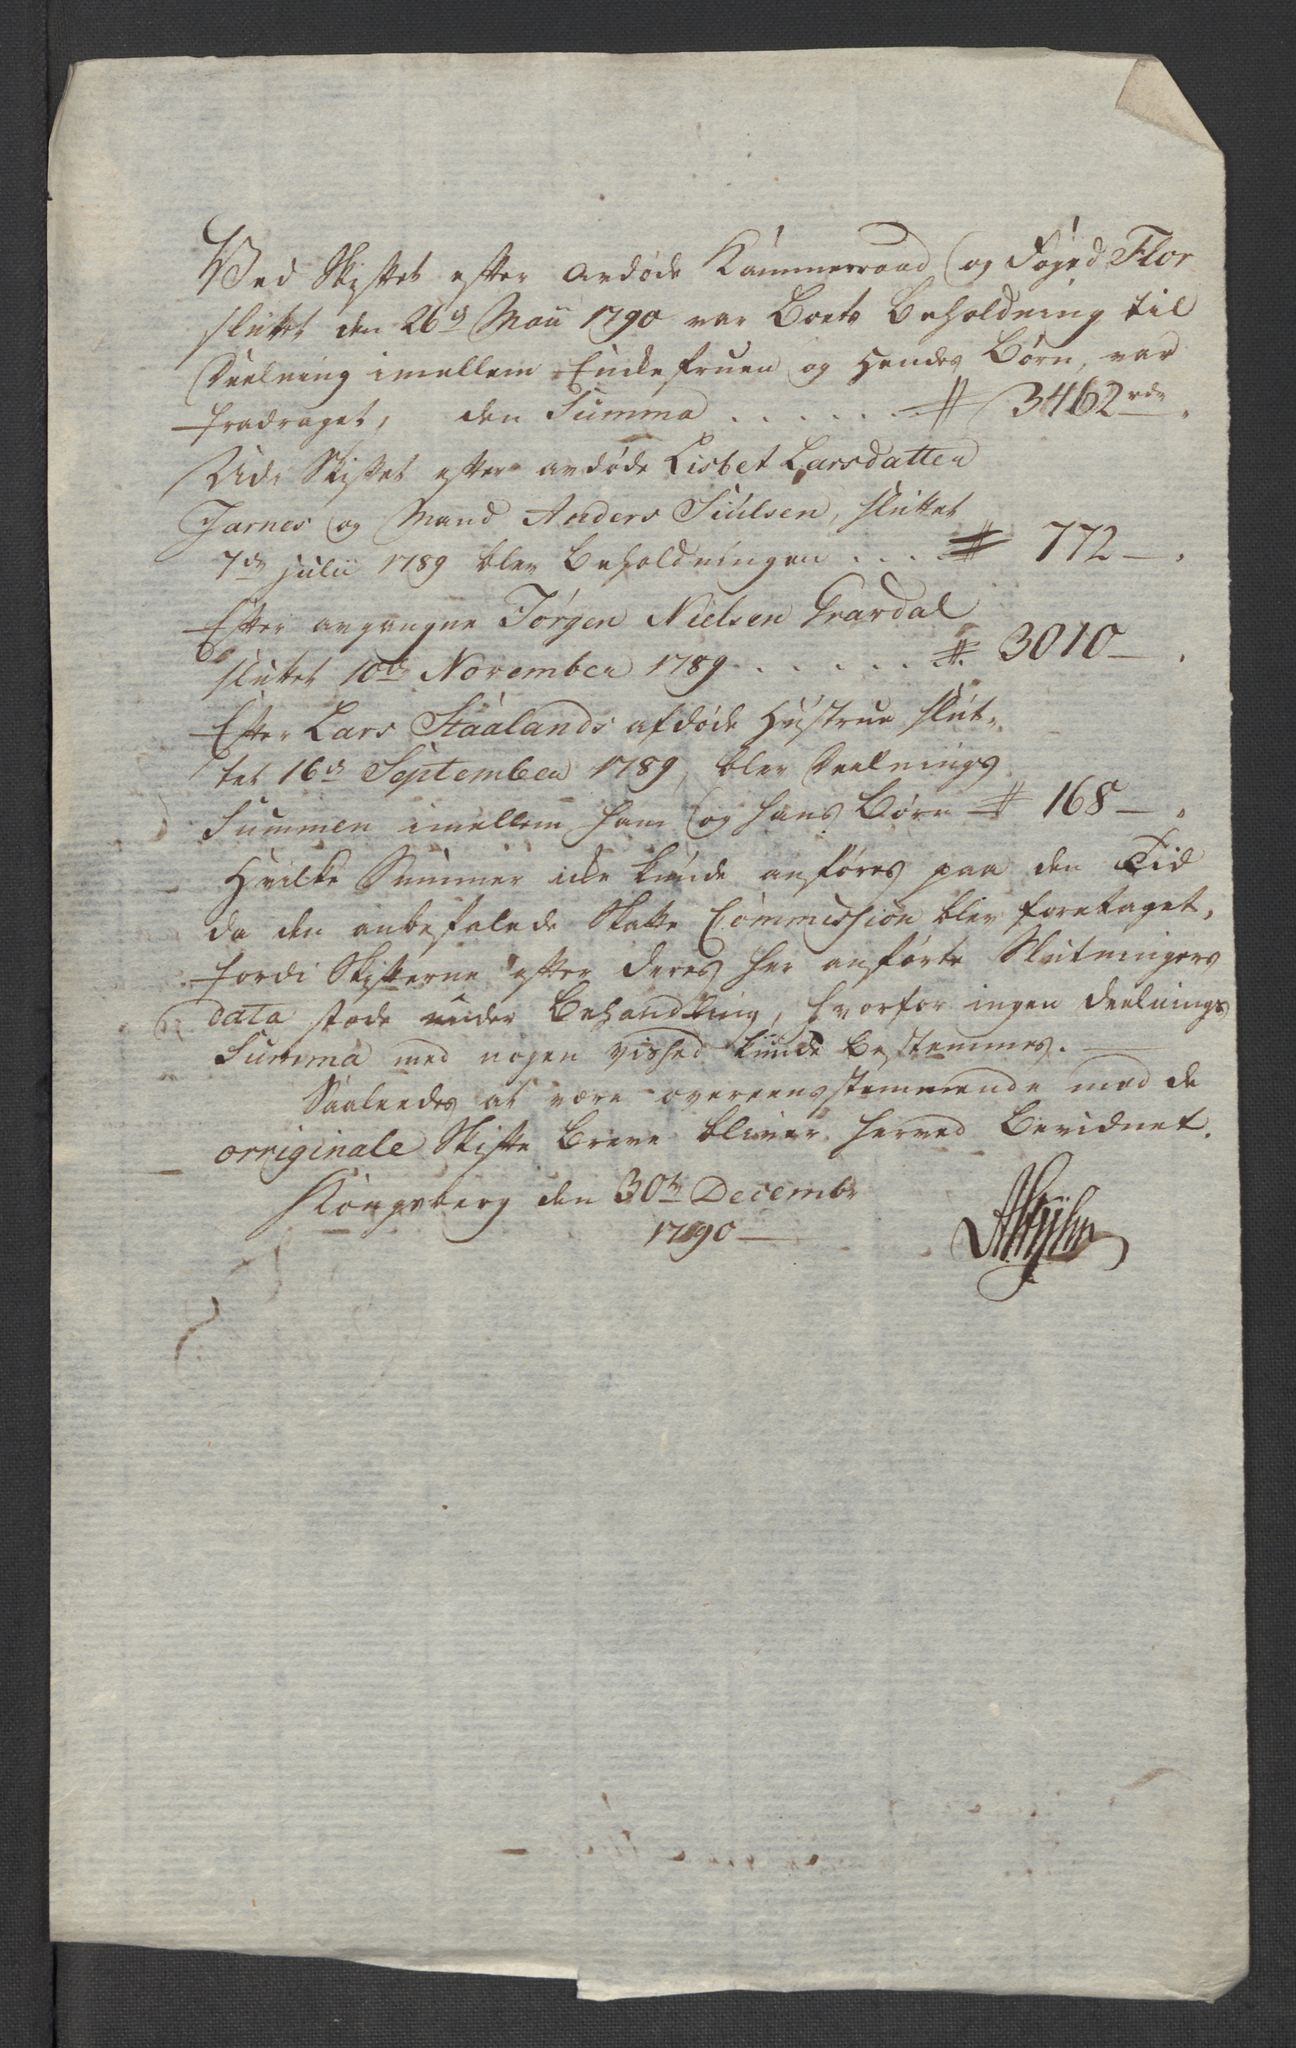 Ved Skiftet efter avdøde Kammerraad og Foged Flor
sluttet den 26de Maii 1790 var Boets Beholdning til
Deelning imellem Enkefruen og Hendes Børn, var
fradraget, den Summa . . . . . . # 3462 rdr.
Udi Skiftet efter avdøde Lisbet Larsdatter
Jarnes og Mand Anders Siulsen, sluttet
7de julii 1789 blev Beholdningen . . . # 772 — .
Efter avgangne Jørgen Nielsen Grardal
sluttet 10de November 1789 . . . . . . # 3010 — .
Efter Lars Staalands afdøde Hustrue slut-
tet 16de September 1789, blev Deelnings
Summen imellem ham og hans Børn # 168 — .
Hvilke Summer icke kunde anføres paa den Tid
da den anbefalede Skatte Commission blev foretaget,
fordi Skifterne efter deres her anførte Slutningers
data stode under Behandling, hvorfor ingen deelnings
Summa med nogen vished kunde bestemmes. —
Saaleedes at være overeensstemmende med de
orriginale Skifte Breve bliver herved Bevidnet.
Kongsberg den 30te Decembr
1790 —